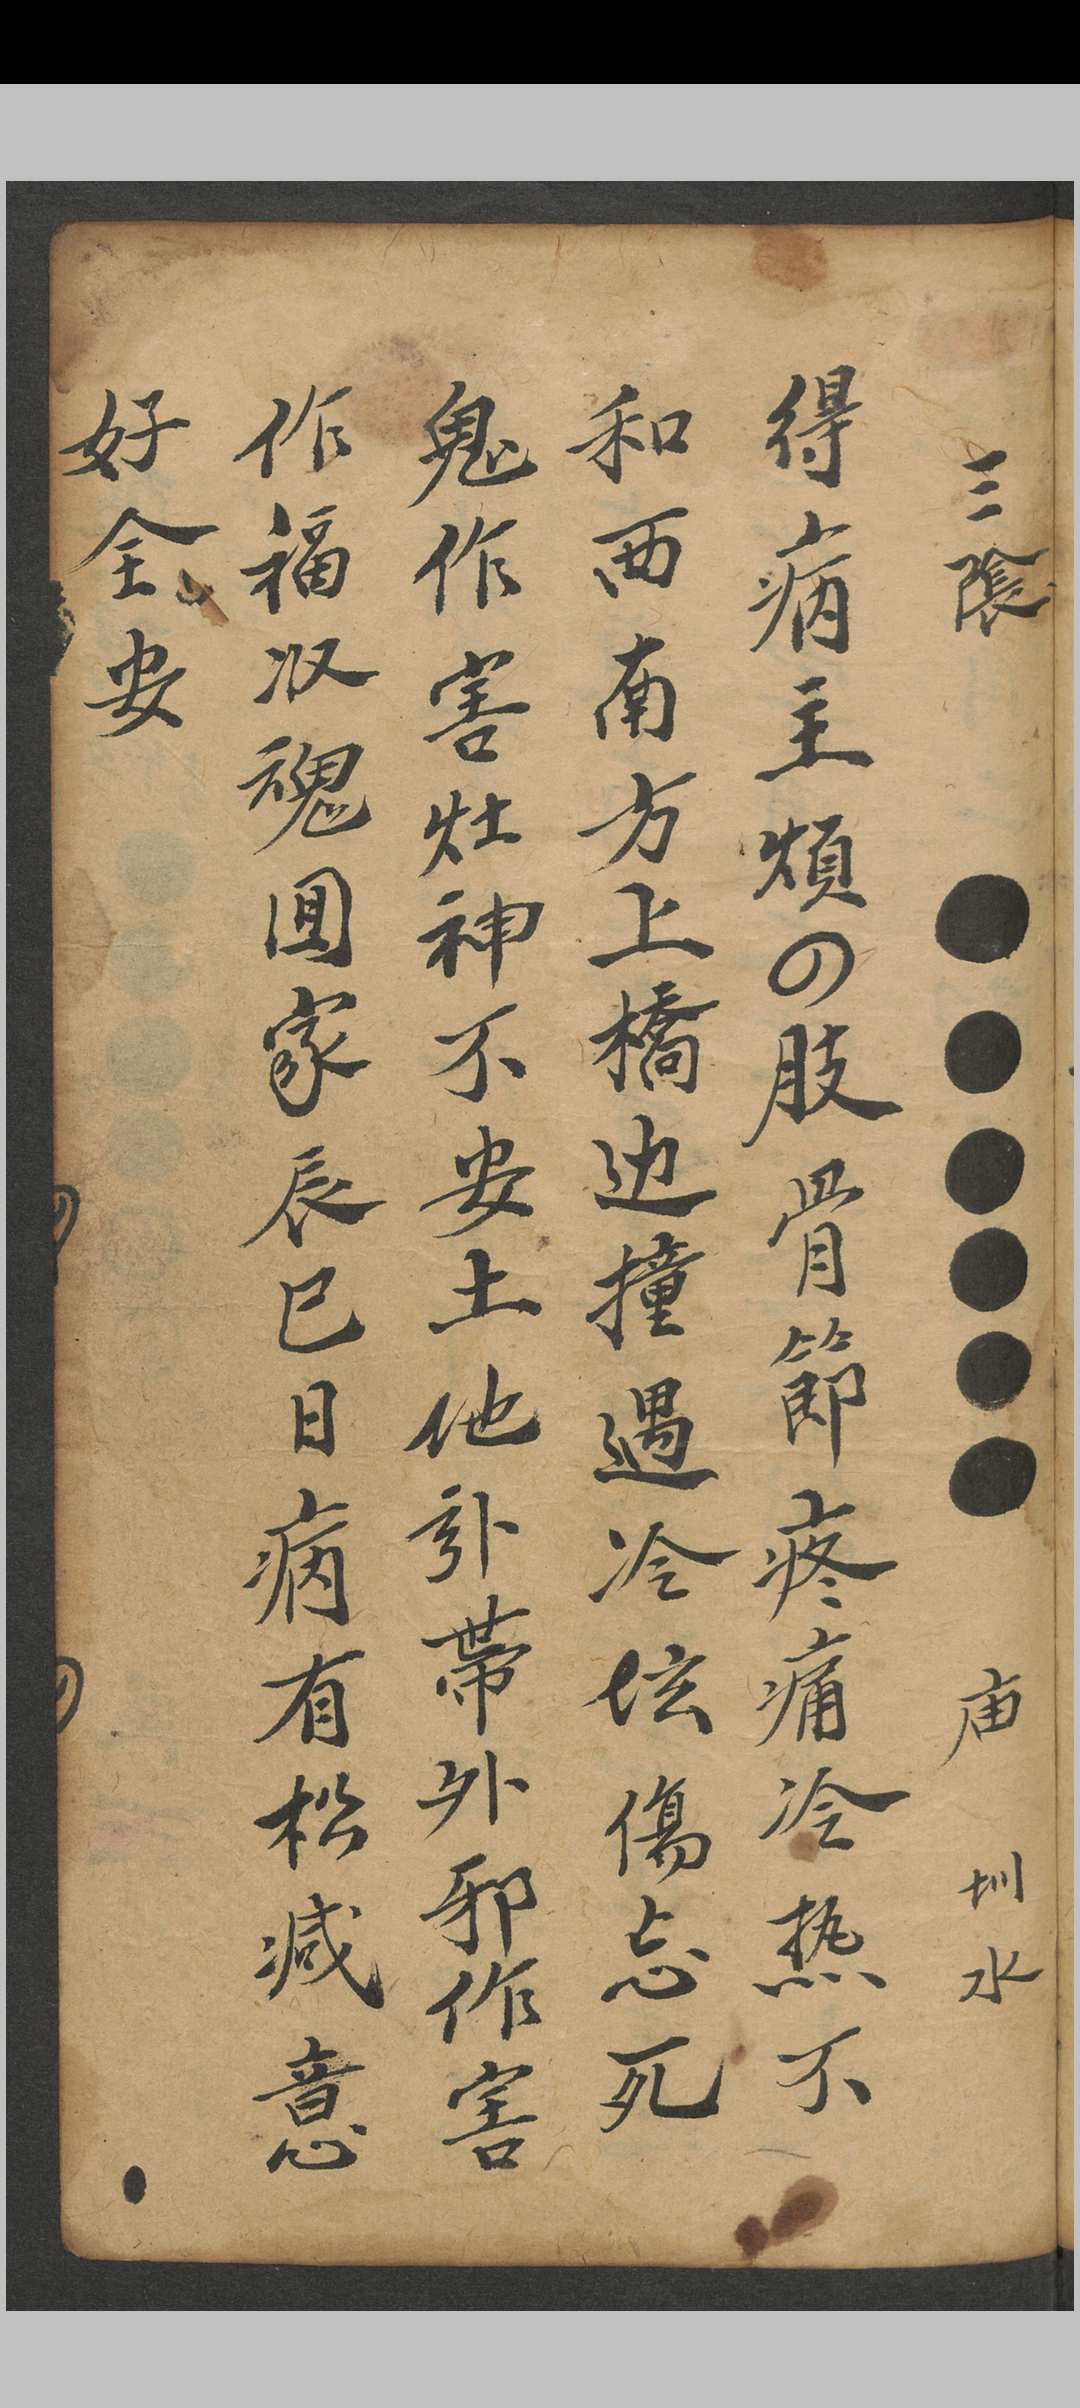 三陰 庙 圳水
得病主煩の肢骨節疼痛冷热不
和西南方上橋边撞遇冷坛傷忘死
鬼作害灶神不安土他卦帯外邪作害
作福収魂囬家辰巳日病有松减意
好全安